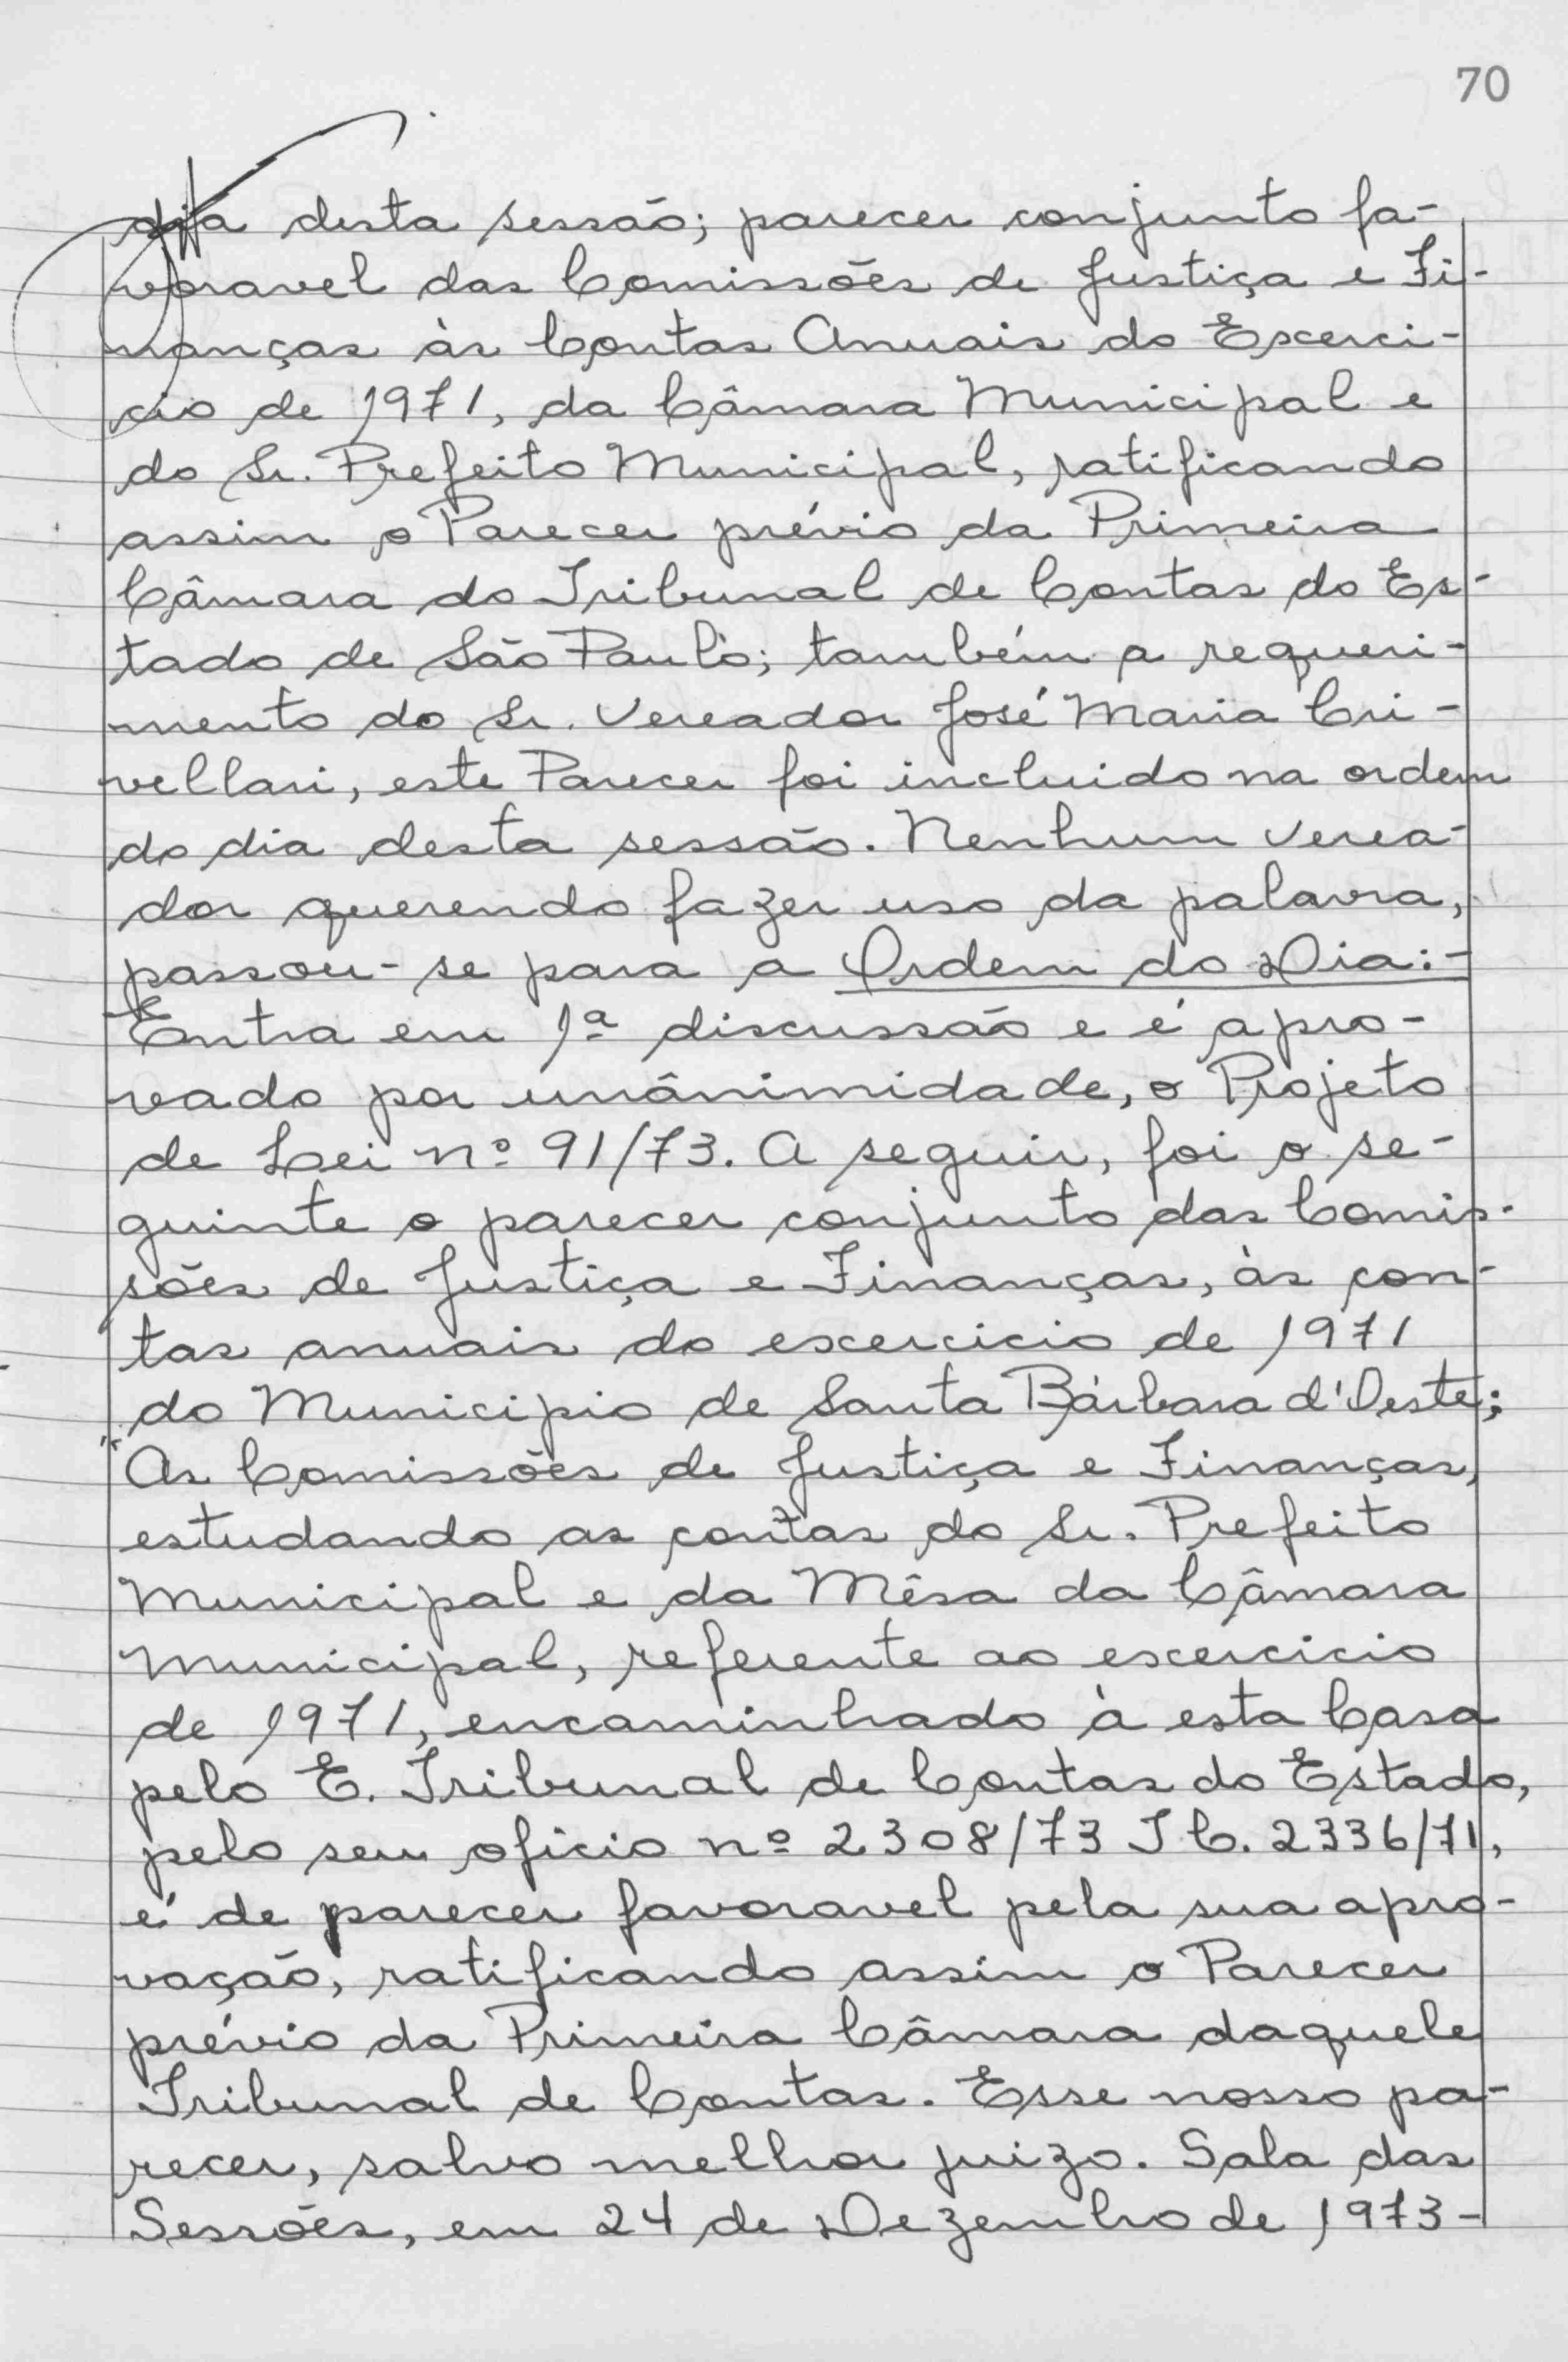 70
dia desta sessão; parecer conjunto fa-
voravel das Comissões de Justiça e Fi-
nanças às Contas Anuais do Excerci-
cio de 1971, da Câmara Municipal e
do Sr. Prefeito Municipal, ratificando
assim o Parecer prévio da Primeira
Câmara do Tribunal de Contas do Es-
tado de São Paulo; também a requeri-
mento do Sr. Vereador José Maria Cri-
vellari, este Parecer foi incluido na ordem
do dia desta sessão. Nenhum verea-
dor querendo fazer uso da palavra,
passou-se para a Ordem do Dia:-
Entra em 1ª discussão e é apro-
vado por unânimidade, o Projeto
de Lei nº 91/73. A seguir, foi o se-
guinte o parecer conjunto das Comis-
sões de Justiça e Finanças, às con-
tas anuais do excercicio de 1971
do Municipio de Santa Bárbara d'Oeste;
"As Comissões de Justiça e Finanças,
estudando as contas do Sr. Prefeito
Municipal e da Mêsa da Câmara
Municipal, referente ao excercicio
de 1971, encaminhado à esta Casa
pelo E. Tribunal de Contas do Estado,
pelo seu oficio nº 2308/73 TC. 2336/71,
é de parecer favoravel pela sua apro-
vação, ratificando assim o Parecer
prévio da Primeira Câmara daquele
Tribunal de Contas. Esse nosso pa-
recer, salvo melhor juizo. Sala das
Sessões, em 24 de Dezembro de 1973-